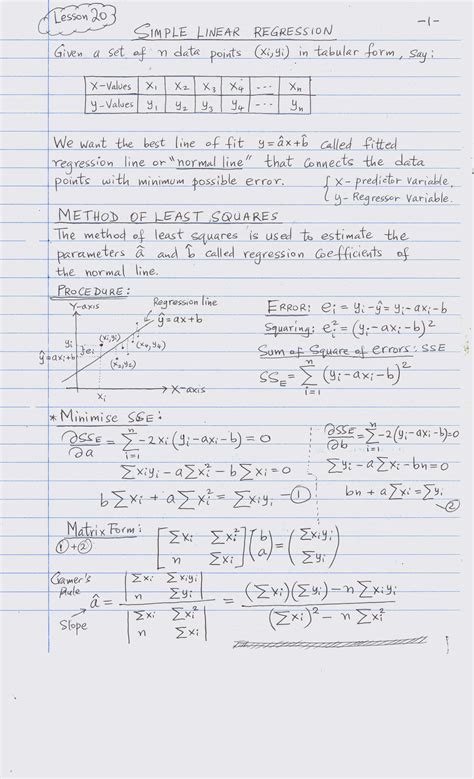 Lesson 20
-1-
SIMPLE LINEAR REGRESSION
Given a set of n data points (xi,yi) in tabular form, say:
x-values | x₁ | x₂ | x₃ | x₄ | --- | xₙ
y-values | y₁ | y₂ | y₃ | y₄ | --- | yₙ
We want the best line of fit y=âx+b̂ called fitted
regression line or "normal line" that connects the data
points with minimum possible error.
{ x - predictor variable,
y - Regressor variable.
METHOD OF LEAST SQUARES
The method of least squares is used to estimate the
parameters â and b̂ called regression coefficients of
the normal line.
PROCEDURE:
Y-axis
Regression line
ŷ=ax+b
yi
(xi,yi)
}ei
(x₄,y₄)
ŷ=axi+b
(x₂,y₂)
xi
X-axis
ERROR: ei = yi-ŷ = yi-axi-b
Squaring: ei² = (yi-axi-b)²
Sum of Square of errors: SSE
SS_E = Σⁿᵢ₌₁ (yi-axi-b)²
* Minimise SSE:
∂SSE/∂a = Σⁿᵢ₌₁ -2xi(yi-axi-b)=0
Σxiyi - aΣxi² - bΣxi = 0
bΣxi + aΣxi² = Σxiyi - ①
∂SSE/∂b = Σⁿᵢ₌₁ -2(yi-axi-b)=0
Σyi - aΣxi - bn = 0
bn + aΣxi = Σyi
②
Matrix Form:
①+②
[Σxi Σxi²; n Σxi](b; a) = (Σxiyi; Σyi)
Cramer's
Rule
â = |Σxi Σxiyi; n Σyi| / |Σxi Σxi²; n Σxi| = ((Σxi)(Σyi) - nΣxiyi) / ((Σxi)² - nΣxi²)
Slope